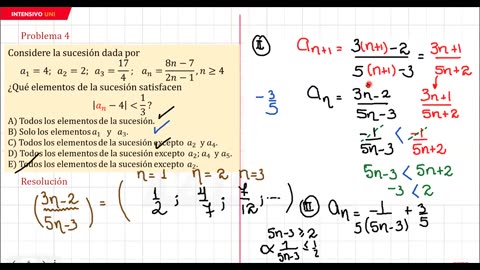 INTENSIVO UNI
Problema 4
Considere la sucesión dada por
a₁ = 4; a₂ = 2; a₃ = 17/4; aₙ = (8n − 7)/(2n − 1), n ≥ 4
¿Qué elementos de la sucesión satisfacen
|aₙ − 4| < 1/3?
A) Todos los elementos de la sucesión.
B) Solo los elementos a₁ y a₃.
C) Todos los elementos de la sucesión excepto a₂ y a₄.
D) Todos los elementos de la sucesión excepto a₂; a₄ y a₅.
E) Todos los elementos de la sucesión excepto a₂.
Resolución
n=1 n=2 n=3
((3n−2)/(5n−3)) = (1/2 ; 4/7 ; 7/12 ; ...)
II
aₙ₊₁ = (3(n+1)−2)/(5(n+1)−3) = (3n+1)/(5n+2)
−3/5
aₙ = (3n−2)/(5n−3) (3n+1)/(5n+2)
−1/(5n−3) < −1/(5n+2)
5n−3 < 5n+2
−3 < 2
III aₙ = −1/(5(5n−3)) + 3/5
5n−3 ≥ 2
1/(5n−3) ≤ 1/2